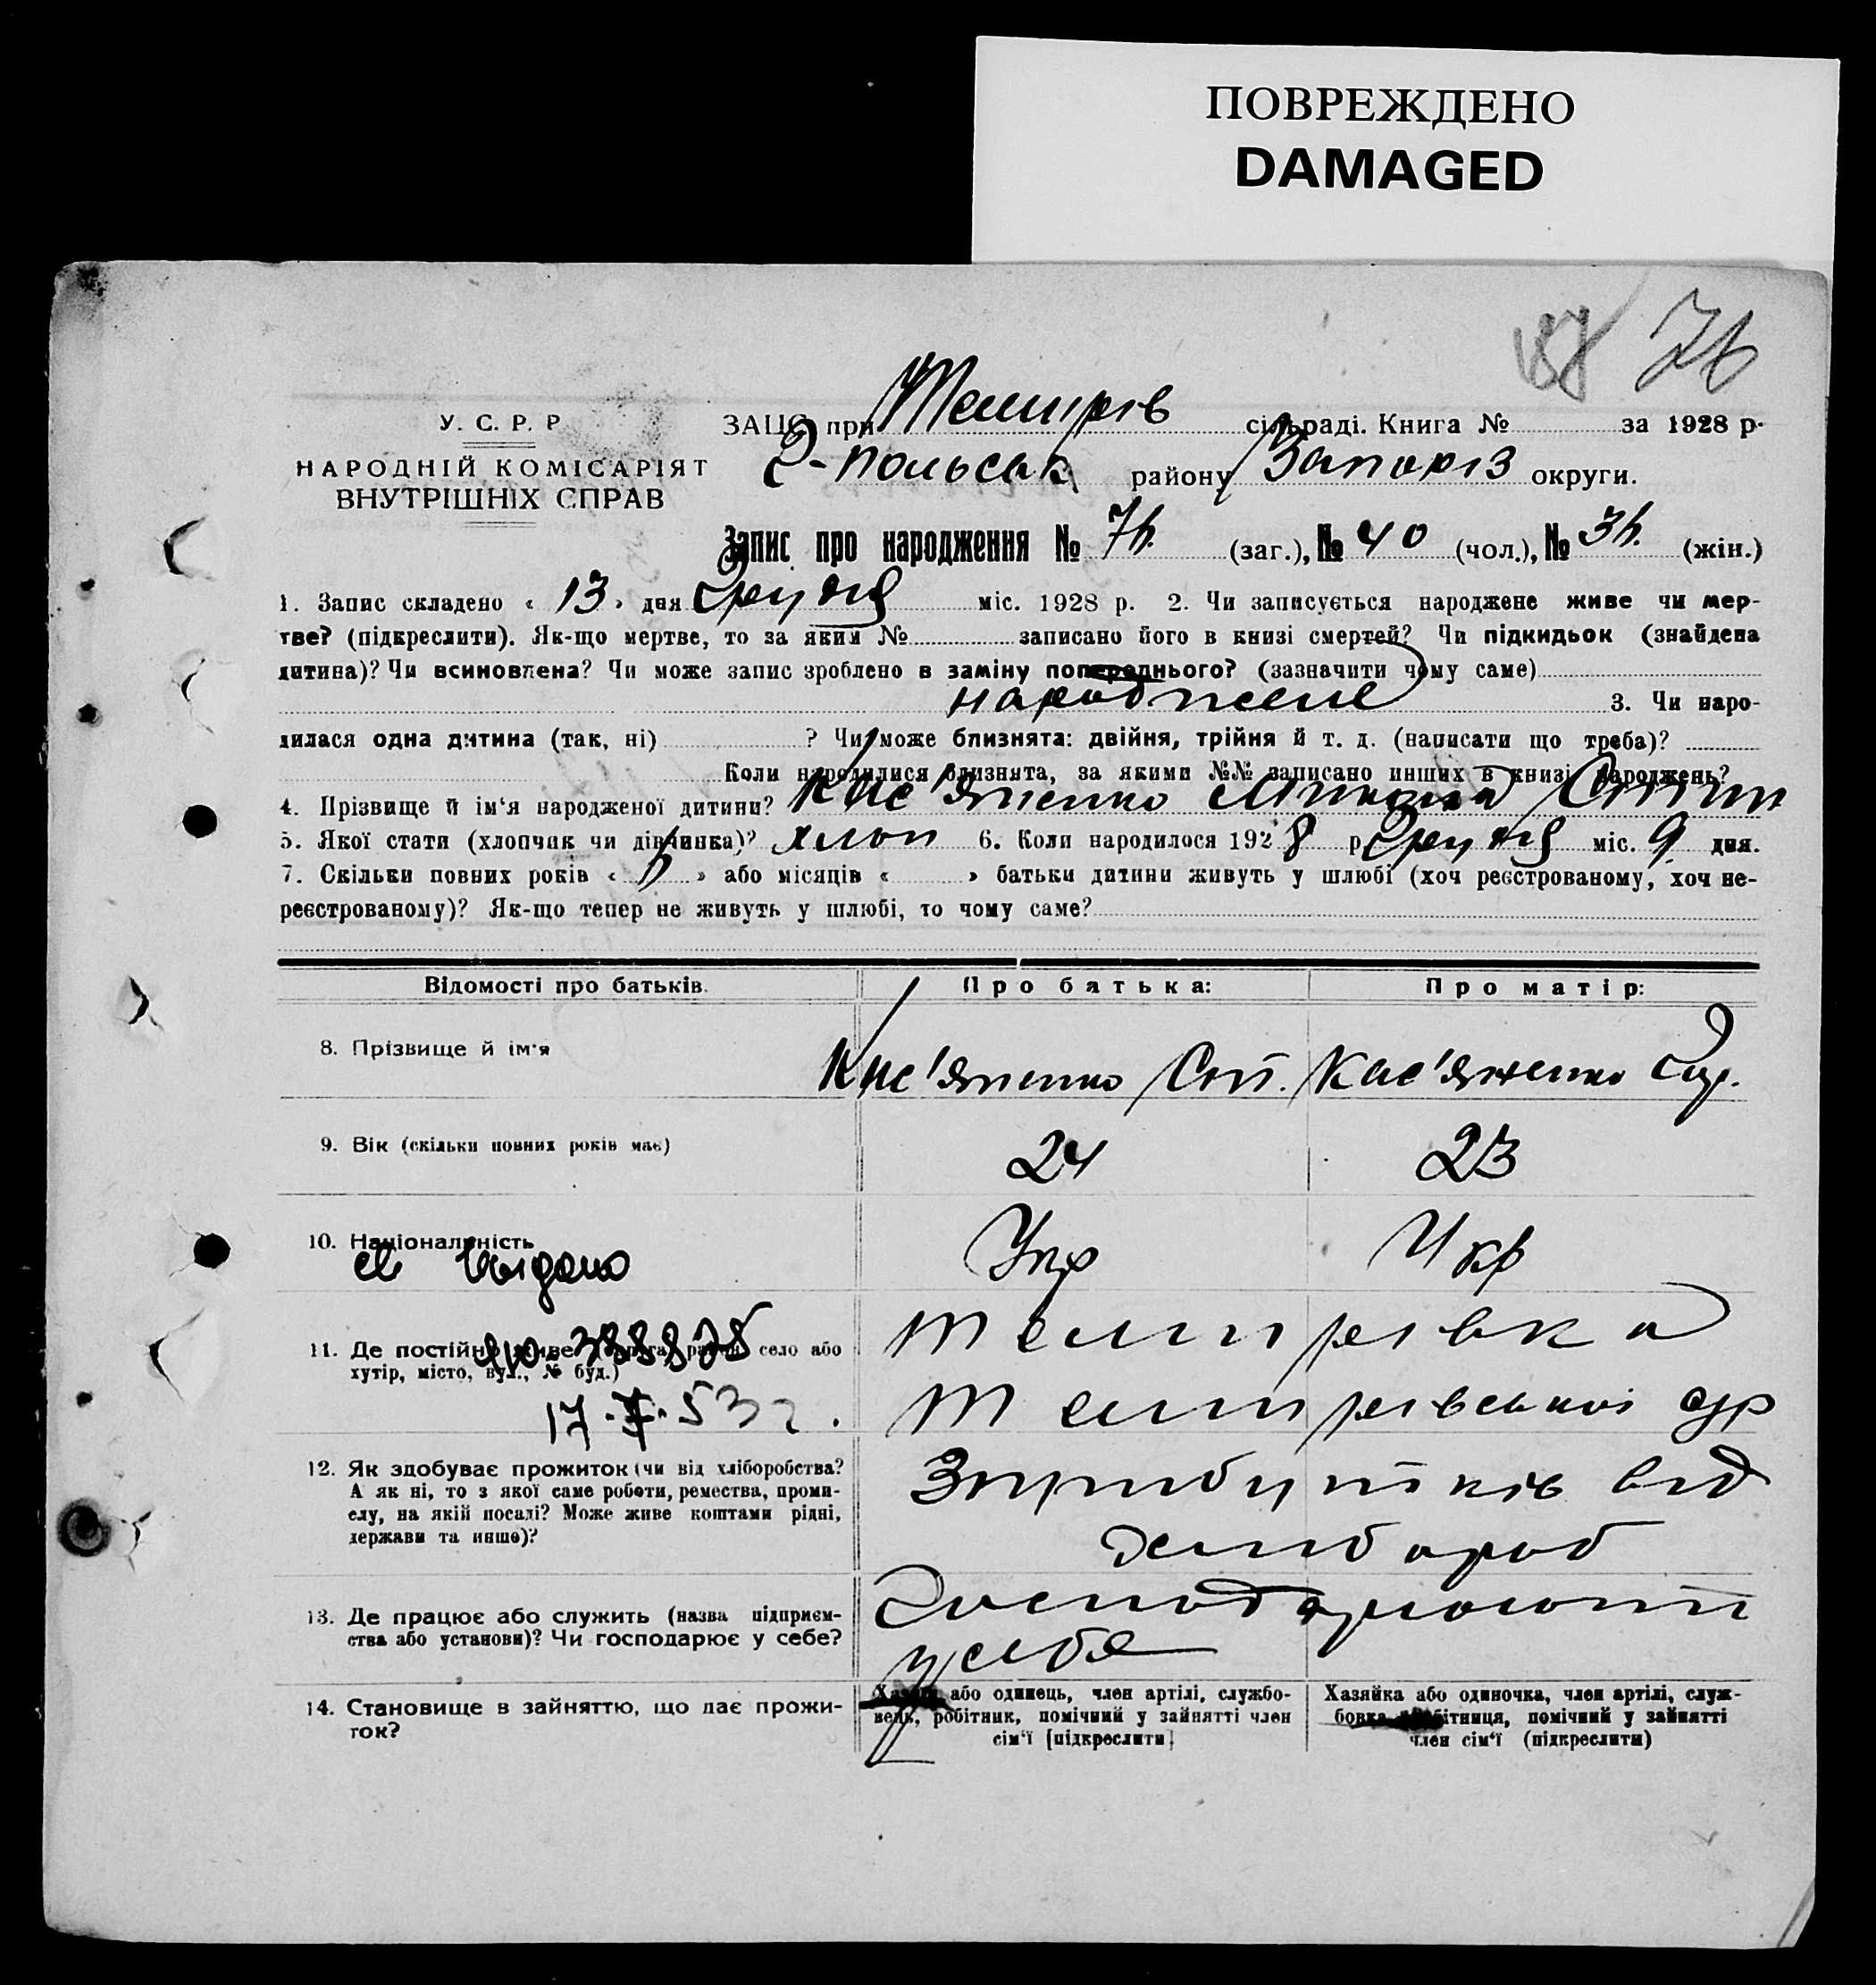 ПОВРЕЖДЕНО
DAMAGED
76
У. С. Р. Р
НАРОДНІЙ КОМІСАРІЯТ
ВНУТРІШНІХ СПРАВ
ЗАЦС при Темирів сільраді. Книга № за 1928 р.
Г-польськ району Запоріз округи.
Запис про народження № 76. (заг.), № 40 (чол.), № 36. (жін.)
1. Запис складено « 13 » дня Грудня міс. 1928 р. 2. Чи записується народжене живе чи мер-
тве? (підкреслити). Як-що мертве, то за яким № записано його в книзі смертей? Чи підкидьок (знайдена
дитина)? Чи всиновлена? Чи може запис зроблено в заміну попереднього? (зазначити чому саме)
народжене 3. Чи наро-
дилася одна дитина (так, ні) ? Чи може близнята: двійня, трійня й т. д. (написати що треба)?
Коли народилися близнята, за якими №№ записано инших в книзі народжень?
4. Прізвище й ім'я народженої дитини? Кас'яненко Микола Степ
5. Якої стати (хлопчик чи дівчинка)? хлоп 6. Коли народилося 1928 р Грудня міс. 9 дня.
7. Скільки повних років « » або місяців « » батьки дитини живуть у шлюбі (хоч реєстрованому, хоч не-
реєстрованому)? Як-що тепер не живуть у шлюбі, то чому саме?
Відомості про батьків. Про батька: Про матір:
8. Прізвище й ім'я Кас'яненко Ст. Кас'яненко
9. Вік (скільки повних років має) 24 23
10. Національність Укр Укр
11. Де постійно живе (округа, район, село або Темирівка
хутір, місто, вул., № буд.)
17.7.53 г. Темирівської с/р
12. Як здобуває прожиток (чи від хліборобства? Зприбутків від
А як ні, то з якої саме роботи, ремества, проми-
слу, на якій посаді? Може живе коштами рідні, хлібороб
держави та инше)?
13. Де працює або служить (назва підприєм- Господарюють
ства або установи)? Чи господарює у себе? у себе
14. Становище в зайняттю, що дає прожи-
ток?
Хазяїн або одинець, член артілі, службо-
вець, робітник, помічний у зайнятті член
сім'ї [підкреслити]
Хазяйка або одиночка, член артілі, служ-
бовка, робітниця, помічний у зайнятті
член сім'ї (підкреслити)